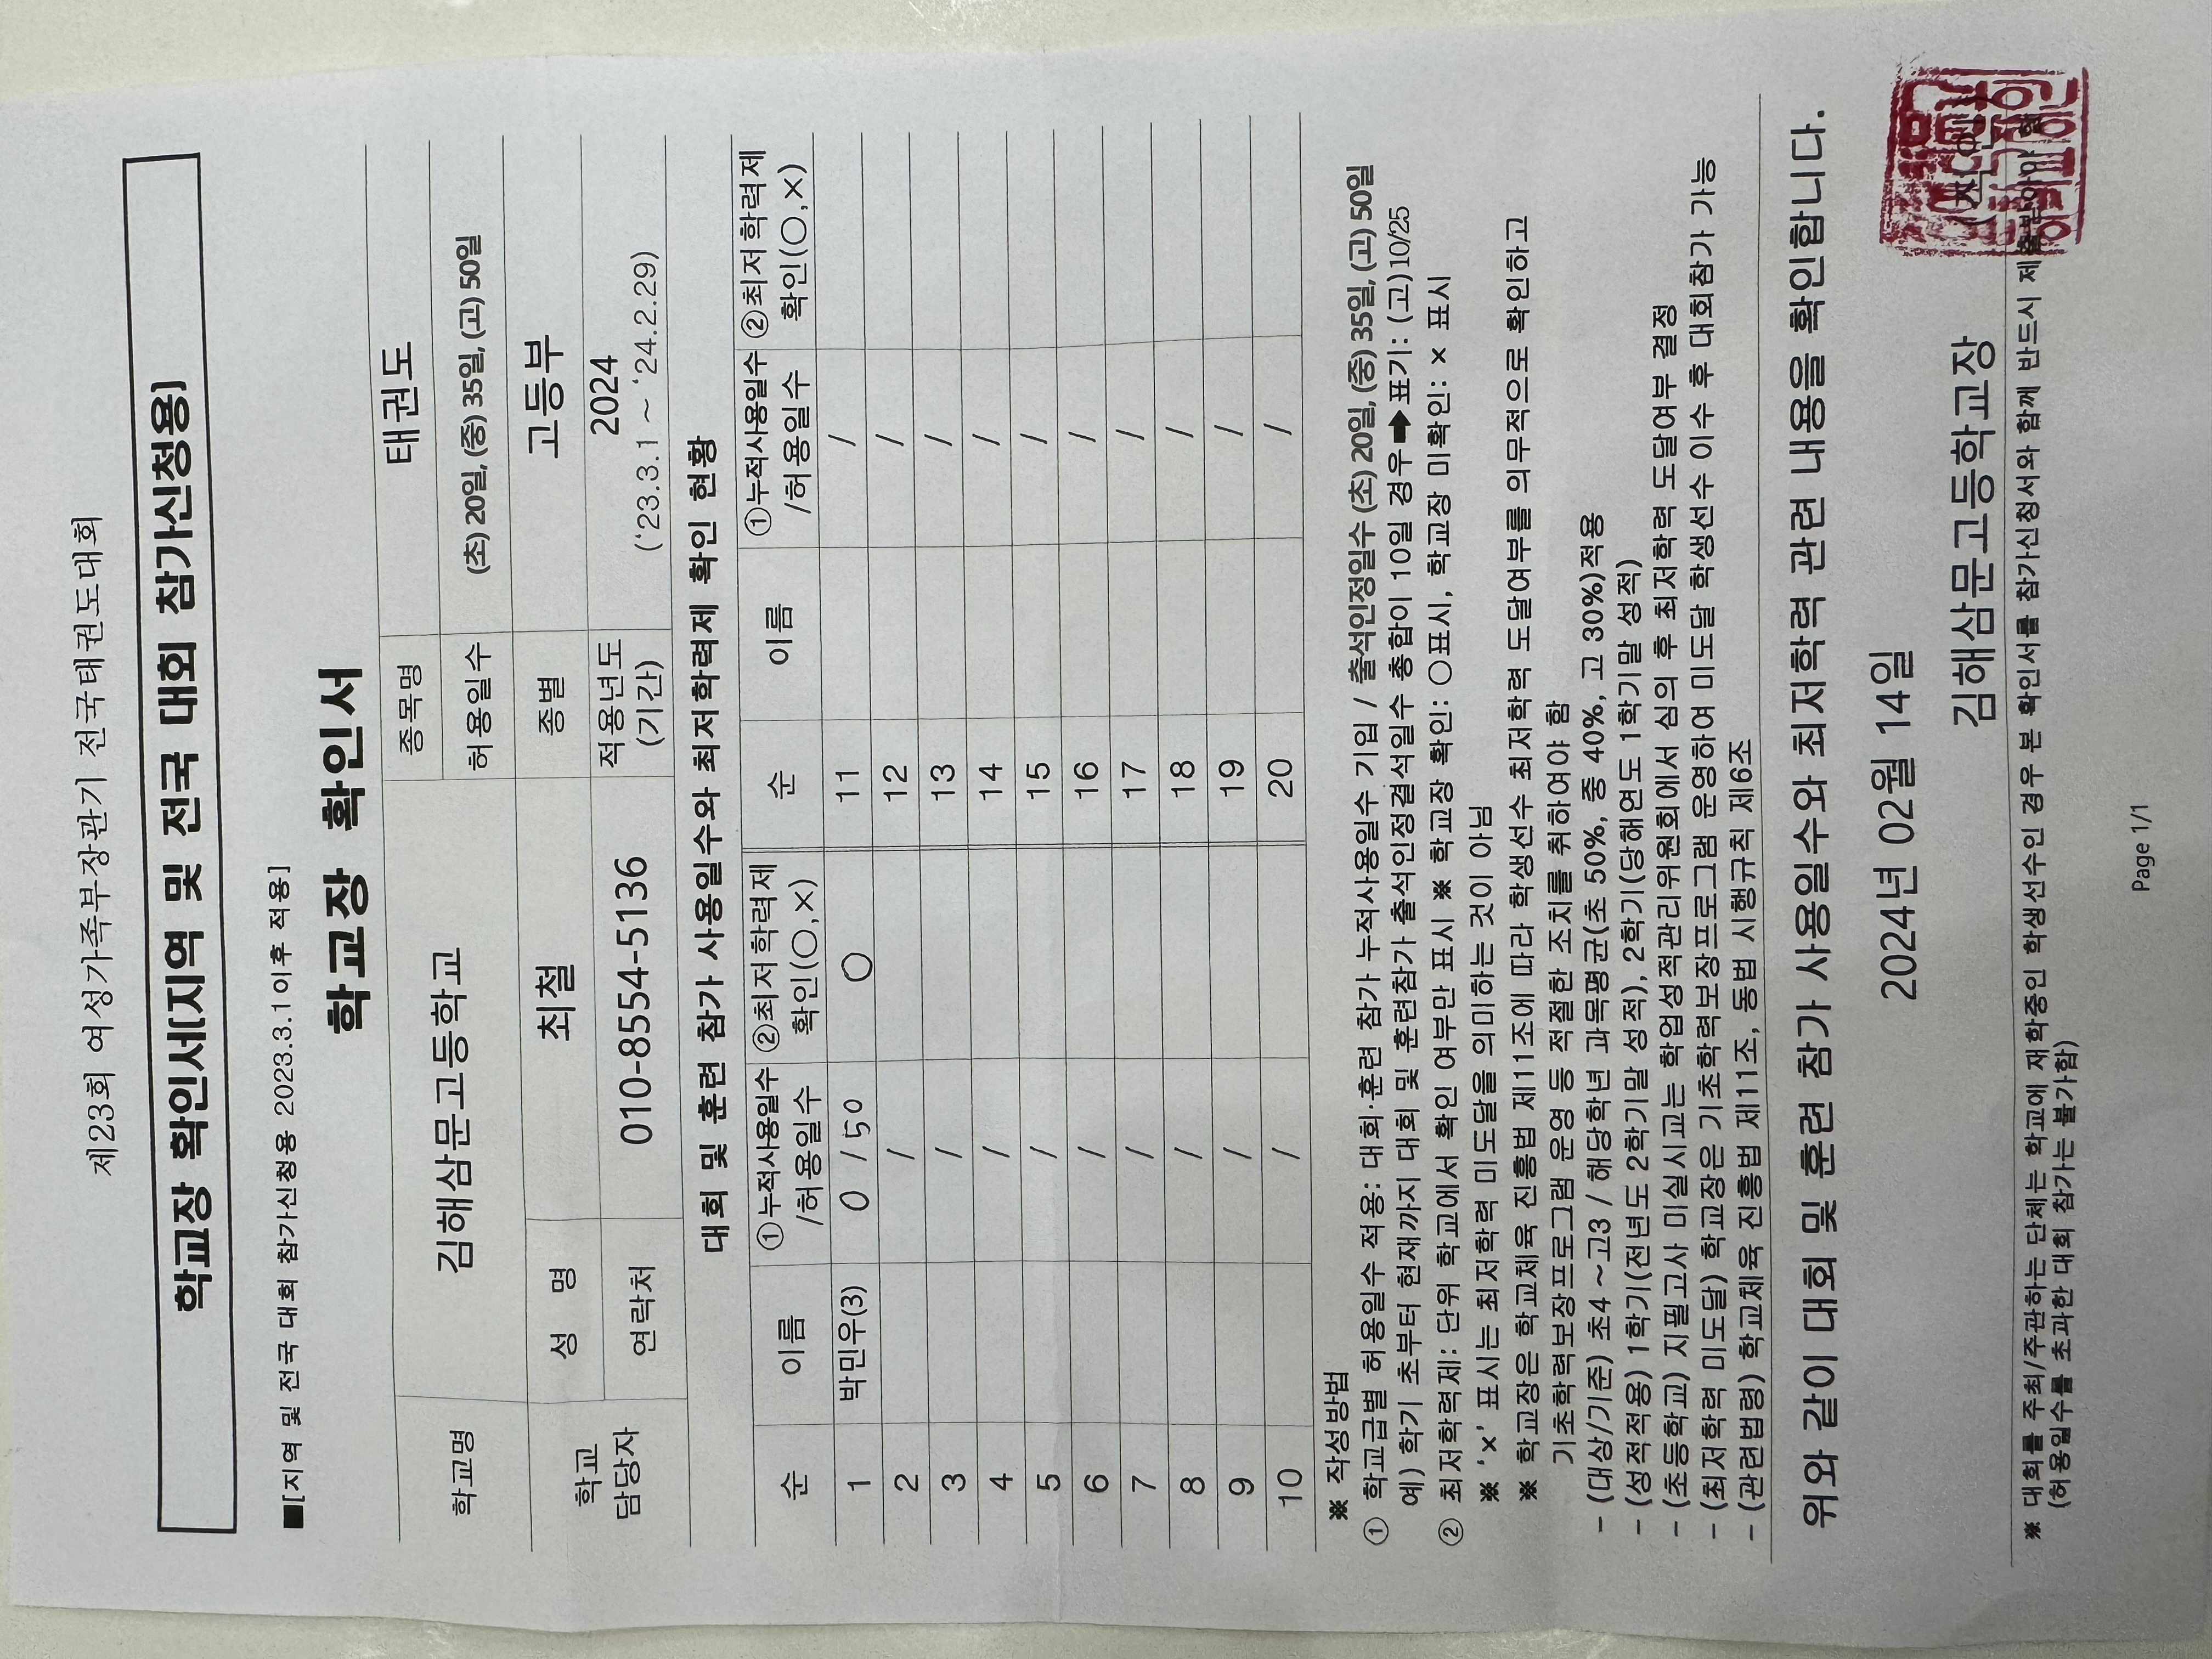 제23회 여성가족부장관기 전국태권도대회
학교장 확인서[지역 및 전국 대회 참가신청용]
■[지역 및 전국 대회 참가신청용 2023.3.1이후 적용]
학교장 확인서
학교명 김해삼문고등학교 종목명 태권도
허용일수 (초) 20일, (중) 35일, (고) 50일
학교 담당자 성 명 최철 종별 고등부
연락처 010-8554-5136 적용년도 (기간) 2024
('23.3.1 ~ '24.2.29)
대회 및 훈련 참가 사용일수와 최저학력제 확인 현황
순 이름 ①누적사용일수 /허용일수 ②최저학력제 확인(○,×) 순 이름 ①누적사용일수 /허용일수 ②최저학력제 확인(○,×)
1 박민우(3) 0 / 50 ○ 11 /
2 / 12 /
3 / 13 /
4 / 14 /
5 / 15 /
6 / 16 /
7 / 17 /
8 / 18 /
9 / 19 /
10 / 20 /
※ 작성방법
① 학교급별 허용일수 적용: 대회·훈련 참가 누적사용일수 기입 / 출석인정일수 (초) 20일, (중) 35일, (고) 50일
예) 학기 초부터 현재까지 대회 및 훈련참가 출석인정결석일수 총합이 10일 경우 ➡ 표기: (고) 10/25
② 최저학력제: 단위 학교에서 확인 여부만 표시 ※ 학교장 확인: ○표시, 학교장 미확인: × 표시
※ '×' 표시는 최저학력 미도달을 의미하는 것이 아님
※ 학교장은 학교체육 진흥법 제11조에 따라 학생선수 최저학력 도달여부를 의무적으로 확인하고
기초학력보장프로그램 운영 등 적절한 조치를 취하여야 함
- (대상/기준) 초4 ~ 고3 / 해당학년 과목평균(초 50%, 중 40%, 고 30%)적용
- (성적적용) 1학기(전년도 2학기말 성적), 2학기(당해연도 1학기말 성적)
- (초등학교) 지필고사 미실시교는 학업성적관리위원회에서 심의 후 최저학력 도달여부 결정
- (최저학력 미도달) 학교장은 기초학력보장프로그램 운영하여 미도달 학생선수 이수 후 대회참가 가능
- (관련법령) 학교체육 진흥법 제11조, 동법 시행규칙 제6조
위와 같이 대회 및 훈련 참가 사용일수와 최저학력 관련 내용을 확인합니다.
2024년 02월 14일
김해삼문고등학교장 (직인)
※ 대회를 주최/주관하는 단체는 학교에 재학중인 학생선수인 경우 본 확인서를 참가신청서와 함께 반드시 제출받아야 함
(허용일수를 초과한 대회 참가는 불가함)
Page 1/1